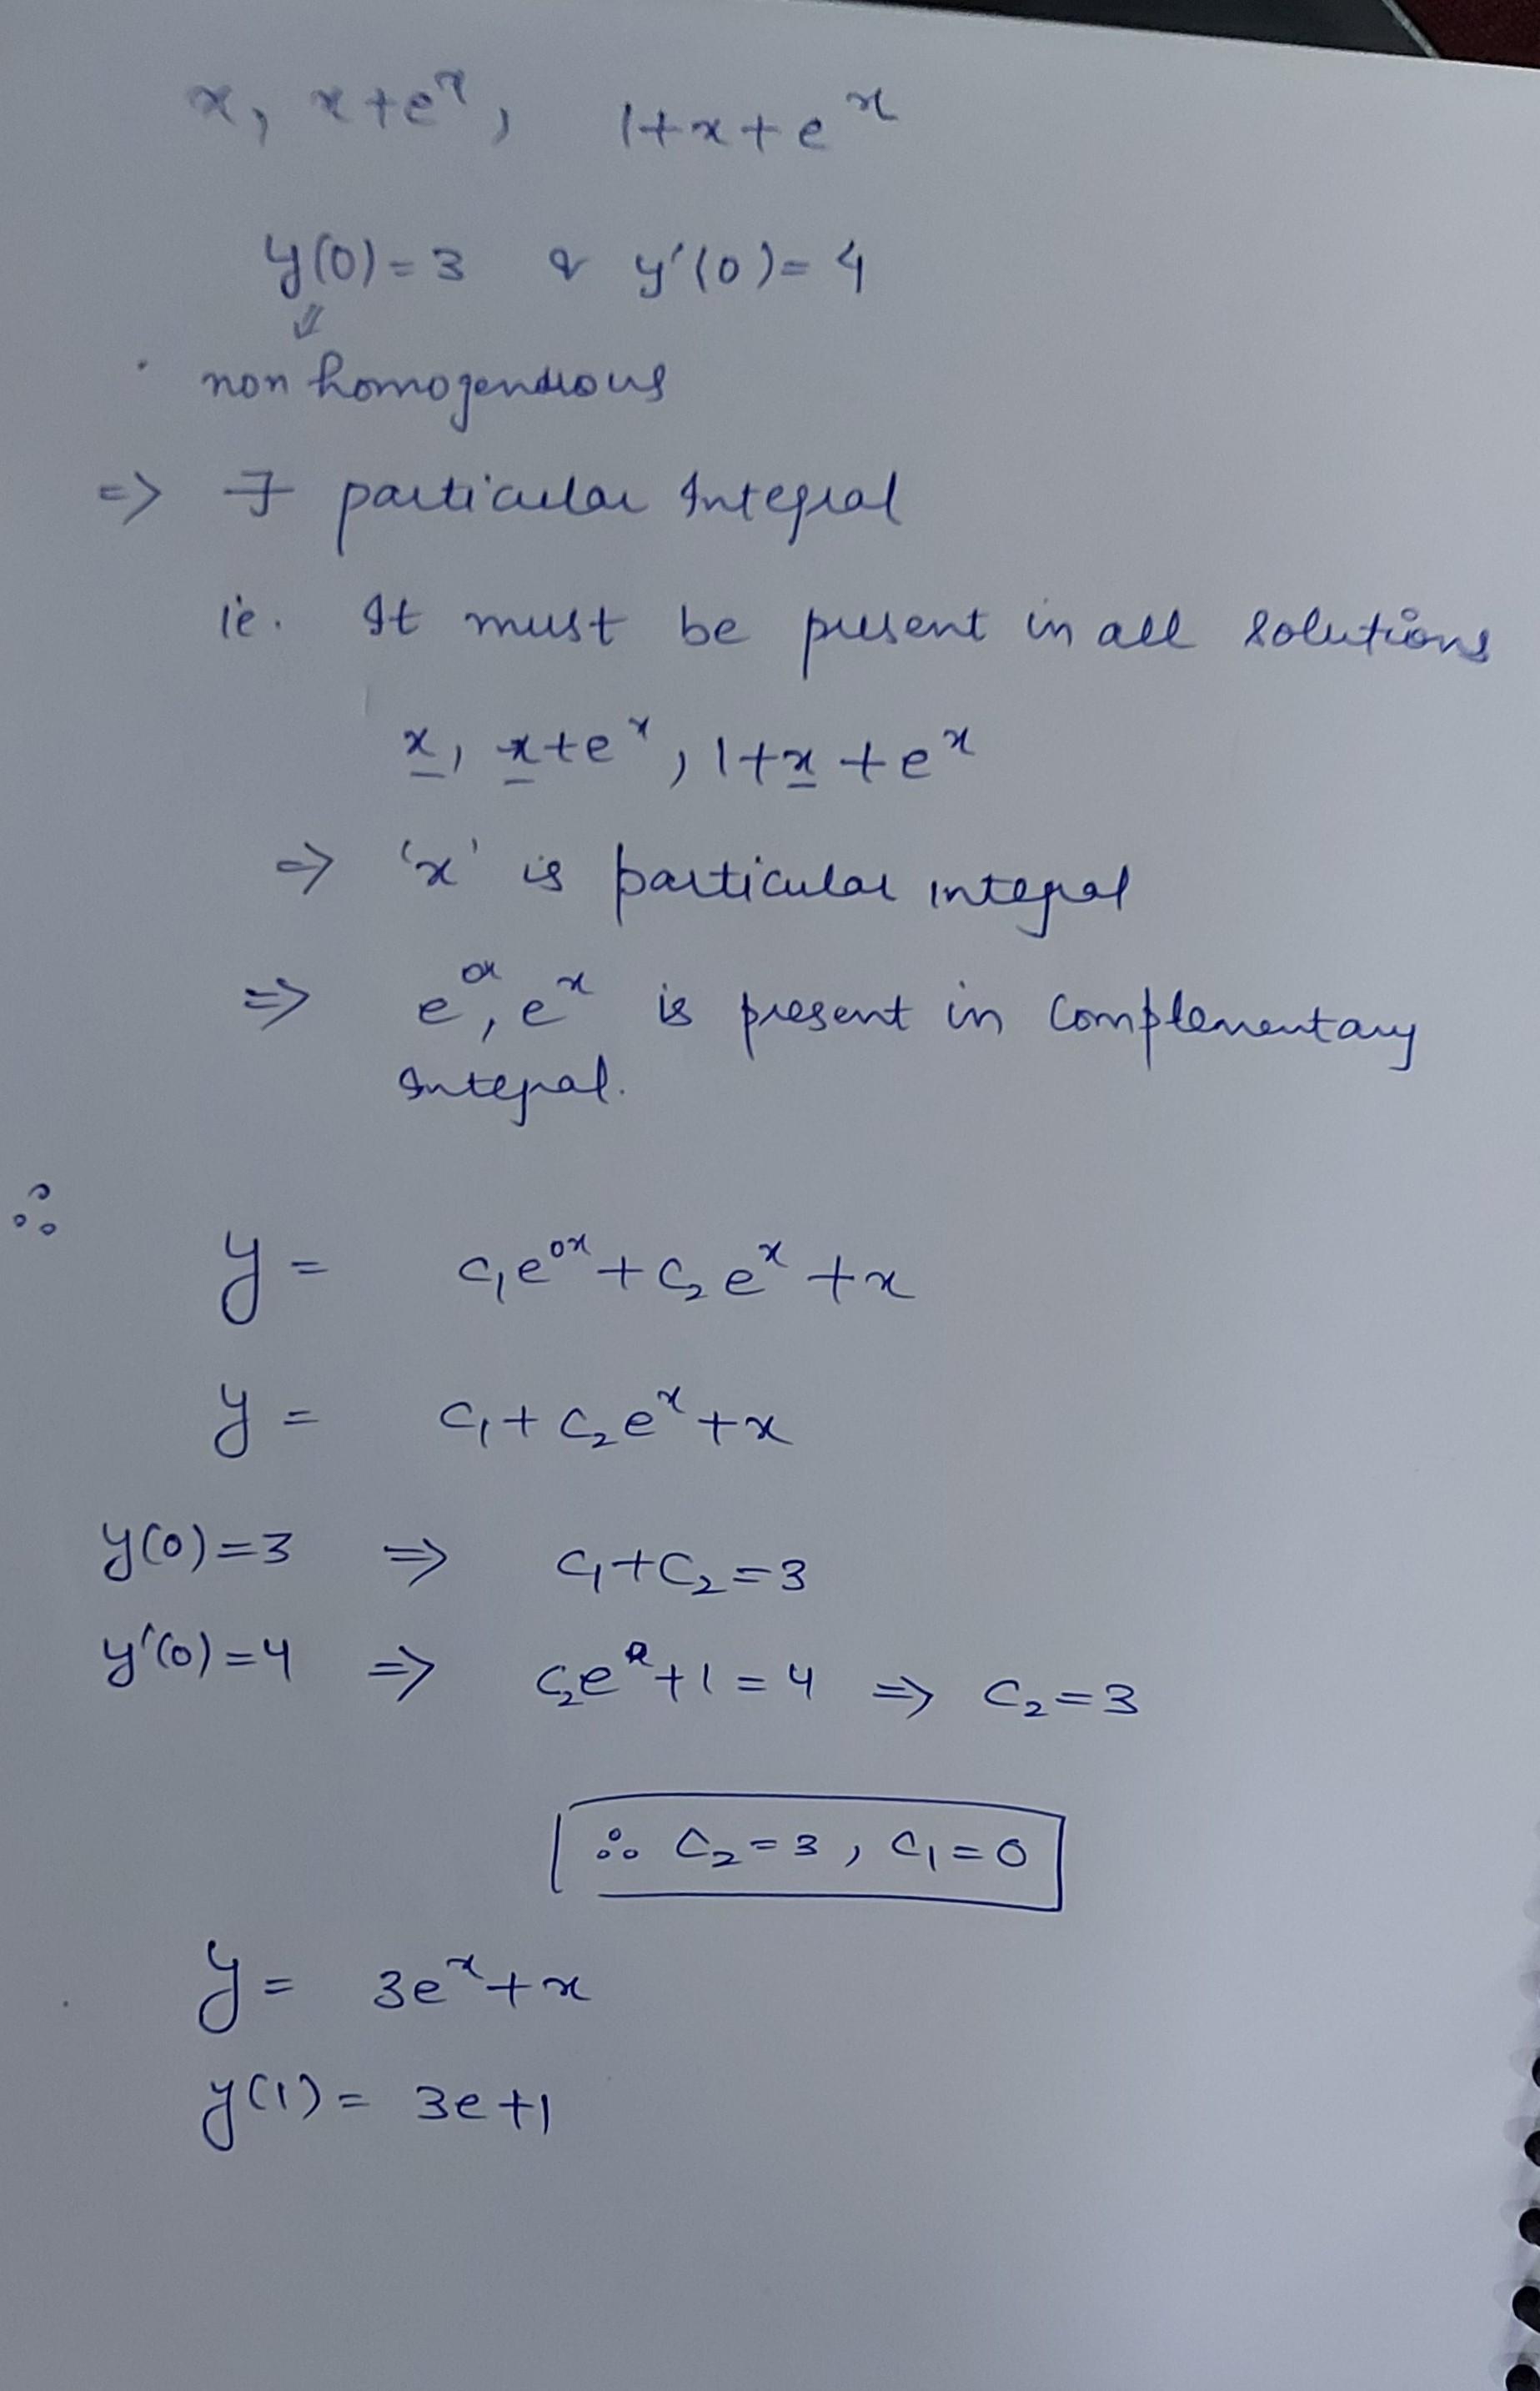 x, x+eˣ, 1+x+eˣ
y(0)=3 & y'(0)=4
⇓
non homogeneous
=> ∃ particular Integral
ie. It must be present in all solutions
x, x+eˣ, 1+x+eˣ
=> 'x' is particular integral
=> e⁰ˣ, eˣ is present in Complementary
Integral.
∴
y = c₁e⁰ˣ+c₂eˣ+x
y = c₁+c₂eˣ+x
y(0)=3 => c₁+c₂=3
y'(0)=4 => c₂eˣ+1=4 => c₂=3
∴ c₂=3, c₁=0
y= 3eˣ+x
y(1)= 3e+1